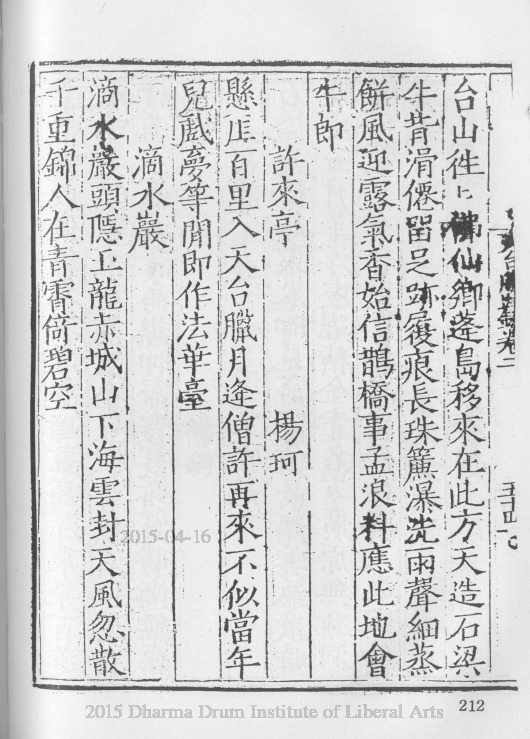 台山徃〻佛仙鄉蓬島移來在此方天造石梁
牛背滑僊留足跡履痕長珠簾瀑洗雨聲細蒸
餅風迎露氣香始信鵲橋事孟浪料應此地會
牛郎
許來亭 楊珂
懸崖百里入天台臘月逢僧許再來不似當年
兒戲夢等閒即作法華臺
滴水巖
滴水巖頭隱玉龍赤城山下海雲封天風忽散
千重錦人在青霄倚碧空
卷二
五十四
2015-04-16
2015 Dharma Drum Institute of Liberal Arts
212